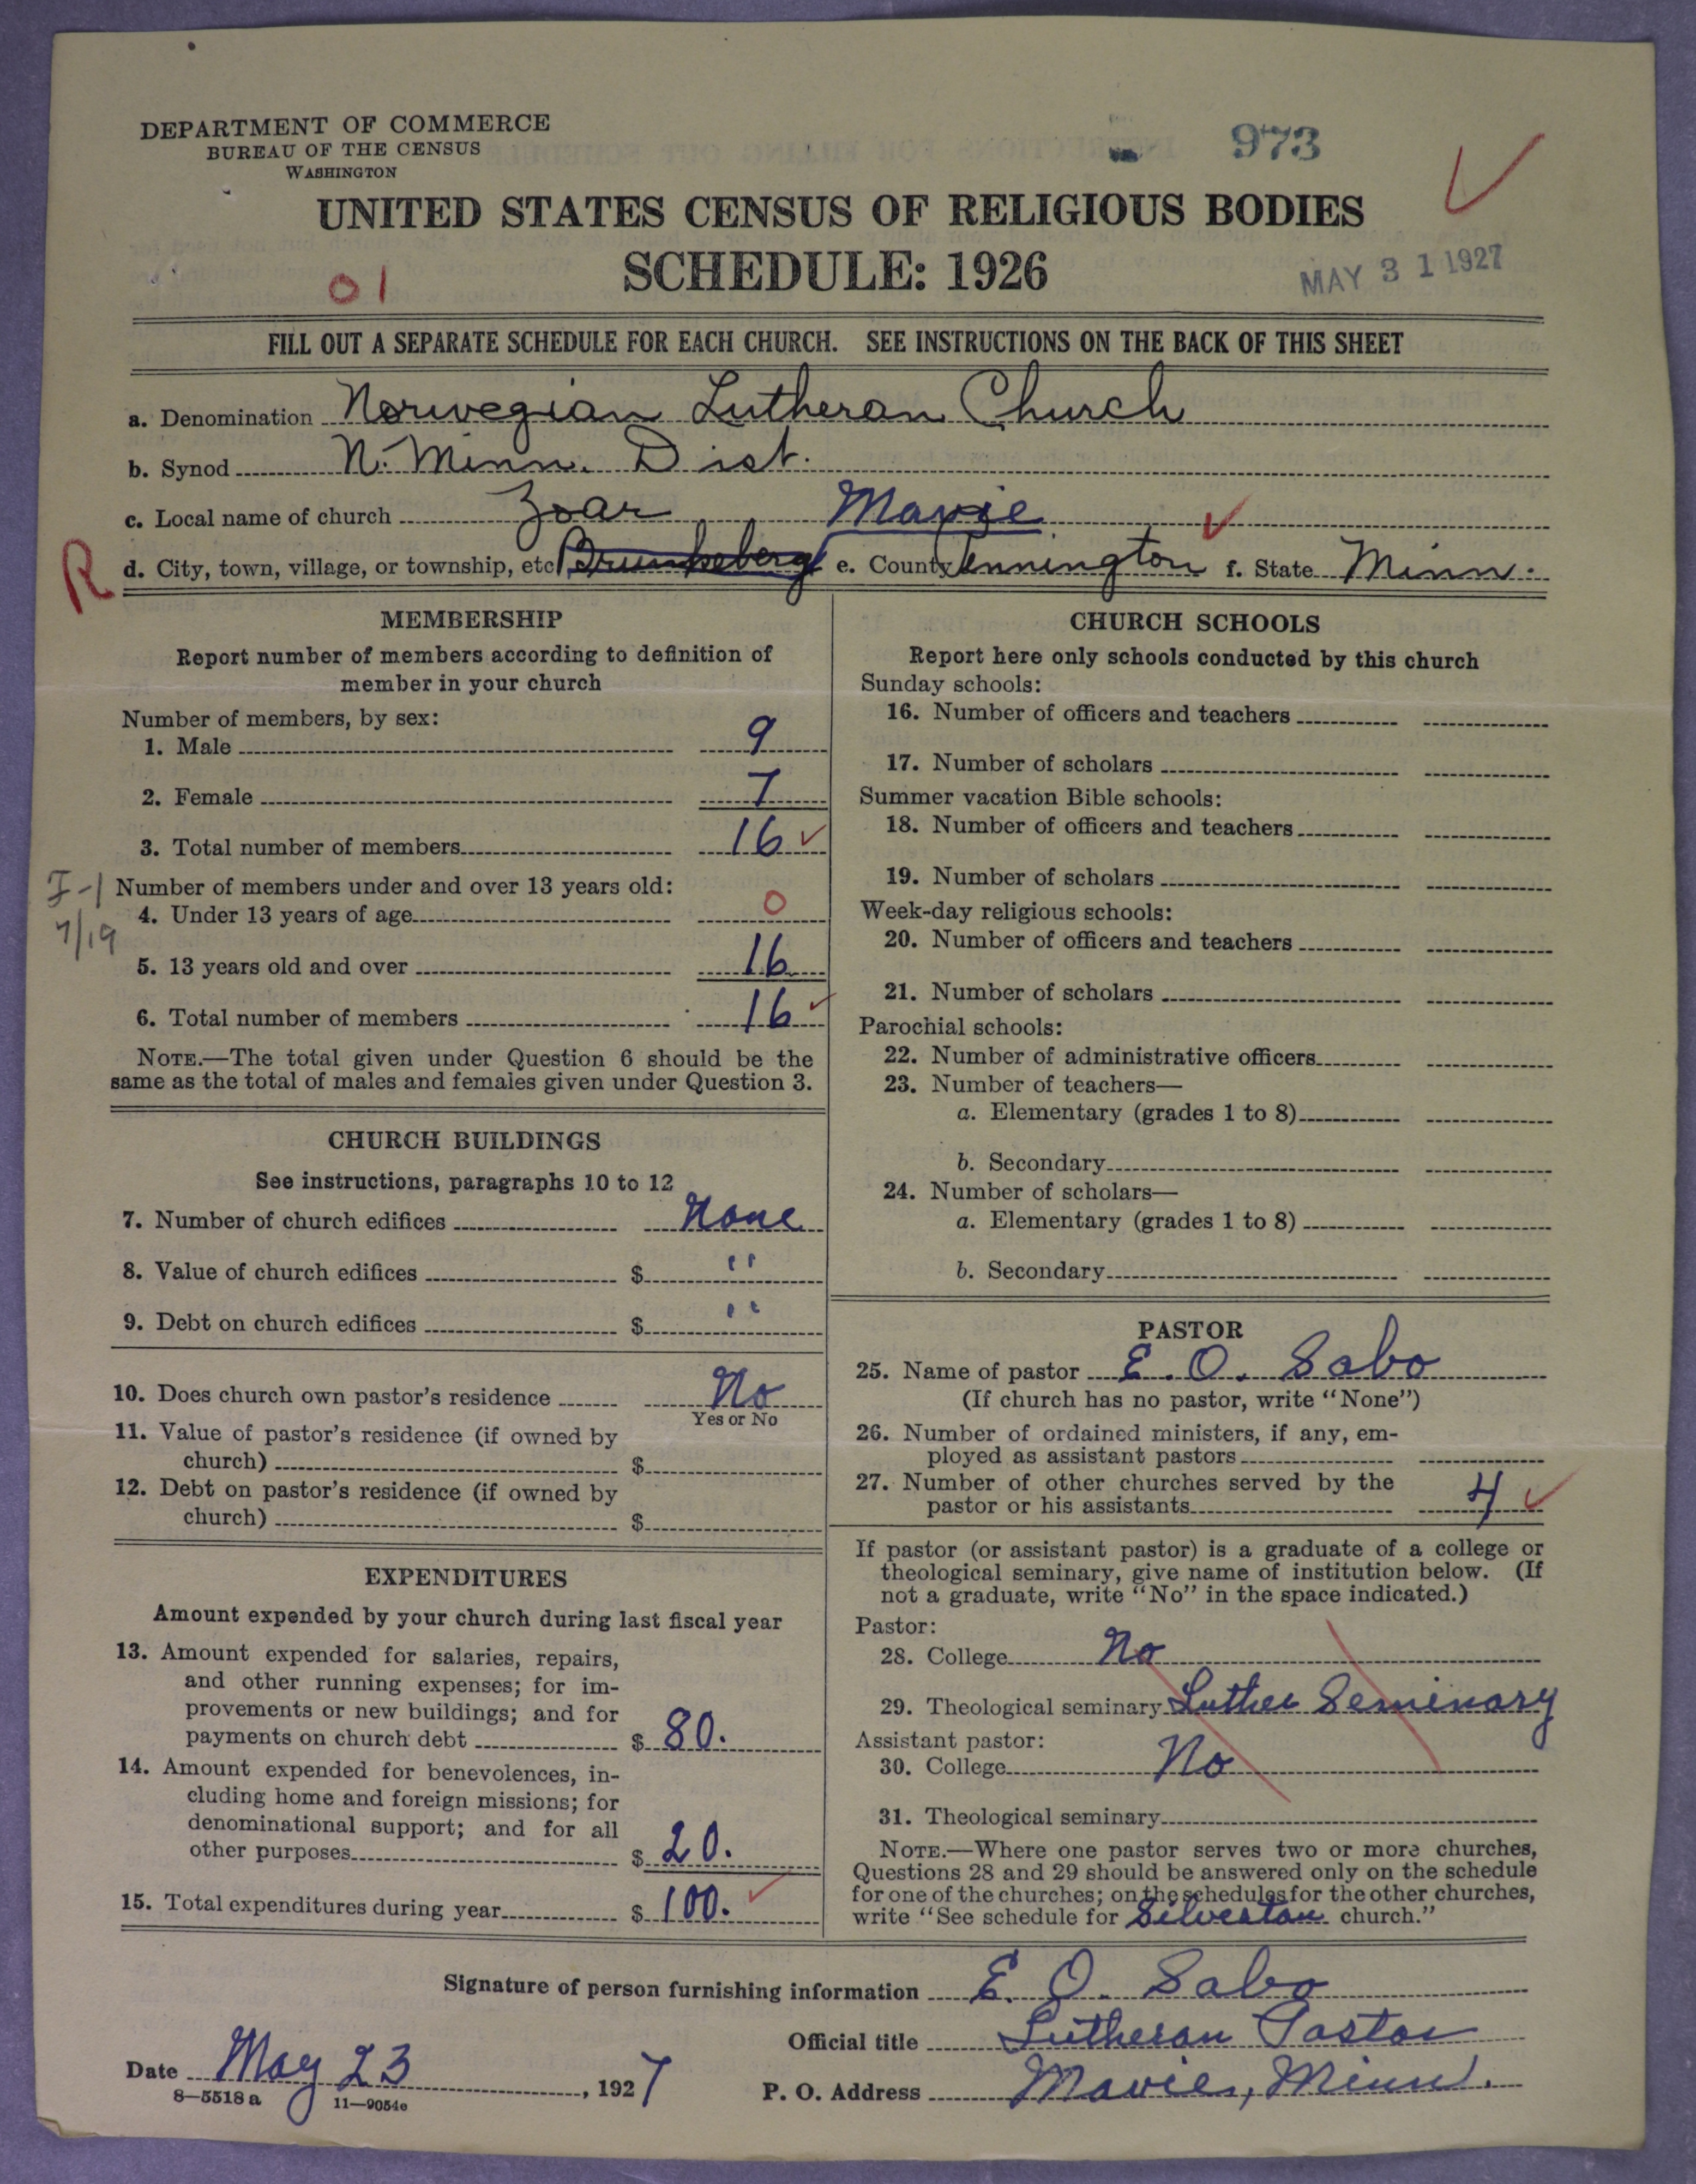 DEPARTMENT OF COMMERCE
BUREAU OF THE CENSUS
WASHINGTON
973
UNITED STATES CENSUS OF RELIGIOUS BODIES
SCHEDULE: 1926
01
MAY 31 1927
FILL OUT A SEPARATE SCHEDULE FOR EACH CHURCH. SEE INSTRUCTIONS ON THE BACK OF THIS SHEET
a. Denomination Norwegian Lutheran Church
b. Synod N. Minn. Dist.
c. Local name of church Zoar Mavie
R d. City, town, village, or township, etc. e. County Pennington f. State Minn.
MEMBERSHIP
Report number of members according to definition of
member in your church
Number of members, by sex:
1. Male 9
2. Female 7
3. Total number of members 16
Number of members under and over 13 years old:
4. Under 13 years of age 0
7/19
5. 13 years old and over 16
6. Total number of members 16
NOTE.—The total given under Question 6 should be the
same as the total of males and females given under Question 3.
CHURCH BUILDINGS
See instructions, paragraphs 10 to 12
7. Number of church edifices None
8. Value of church edifices $ "
9. Debt on church edifices $ "
10. Does church own pastor's residence No
Yes or No
11. Value of pastor's residence (if owned by
church) $
12. Debt on pastor's residence (if owned by
church) $
EXPENDITURES
Amount expended by your church during last fiscal year
13. Amount expended for salaries, repairs,
and other running expenses; for im-
provements or new buildings; and for
payments on church debt $ 80.
14. Amount expended for benevolences, in-
cluding home and foreign missions; for
denominational support; and for all
other purposes $ 20.
15. Total expenditures during year $ 100.
CHURCH SCHOOLS
Report here only schools conducted by this church
Sunday schools:
16. Number of officers and teachers
17. Number of scholars
Summer vacation Bible schools:
18. Number of officers and teachers
19. Number of scholars
Week-day religious schools:
20. Number of officers and teachers
21. Number of scholars
Parochial schools:
22. Number of administrative officers
23. Number of teachers—
a. Elementary (grades 1 to 8)
b. Secondary
24. Number of scholars—
a. Elementary (grades 1 to 8)
b. Secondary
PASTOR
25. Name of pastor E. O. Sabo
(If church has no pastor, write "None")
26. Number of ordained ministers, if any, em-
ployed as assistant pastors
27. Number of other churches served by the
pastor or his assistants 4
If pastor (or assistant pastor) is a graduate of a college or
theological seminary, give name of institution below. (If
not a graduate, write "No" in the space indicated.)
Pastor:
28. College No
29. Theological seminary Luther Seminary
Assistant pastor:
30. College No
31. Theological seminary
NOTE.—Where one pastor serves two or more churches,
Questions 28 and 29 should be answered only on the schedule
for one of the churches; on the schedules for the other churches,
write "See schedule for Silverton church."
Signature of person furnishing information E. O. Sabo
Official title Lutheran Pastor
Date May 23, 1927
P. O. Address Mavie, Minn.
8—5518 a 11—9054e